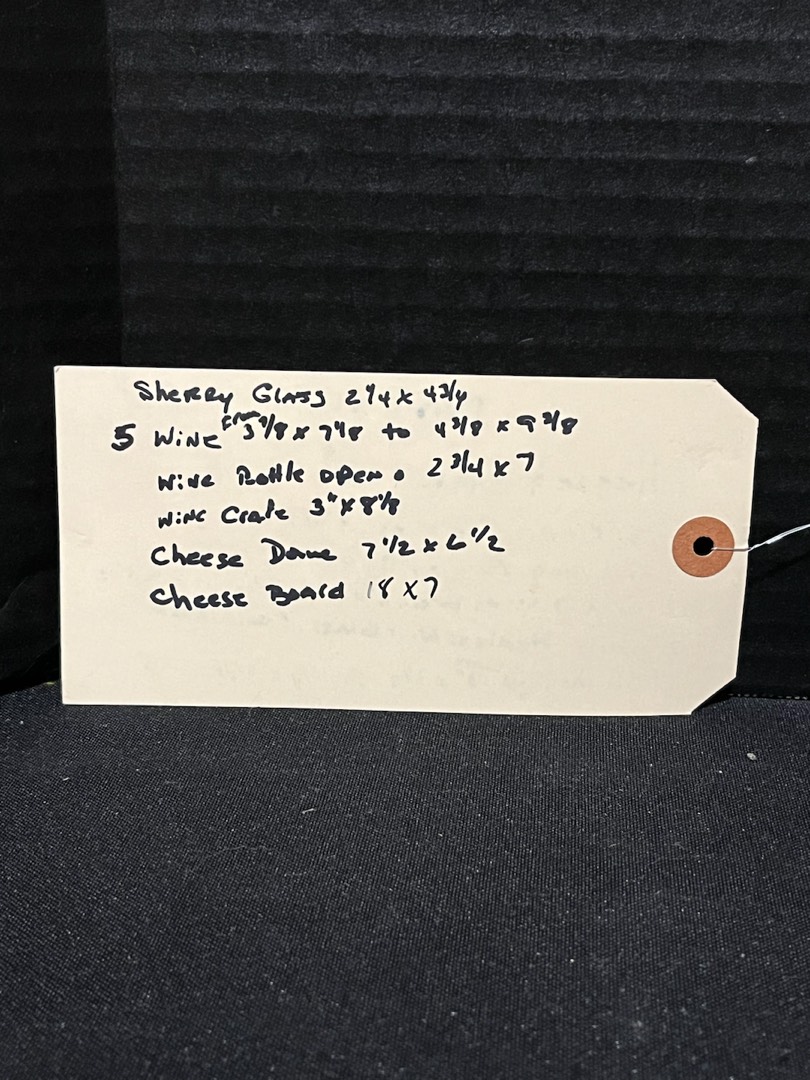 Sherry Glass 2 1/4 x 4 3/4
5 Wine From 3 1/8 x 7 1/8 to 4 3/8 x 9 3/8
Wine Bottle open 2 3/4 x 7
Wine Crate 3" x 8 1/8
Cheese Dome 7 1/2 x 6 1/2
Cheese Board 18 x 7